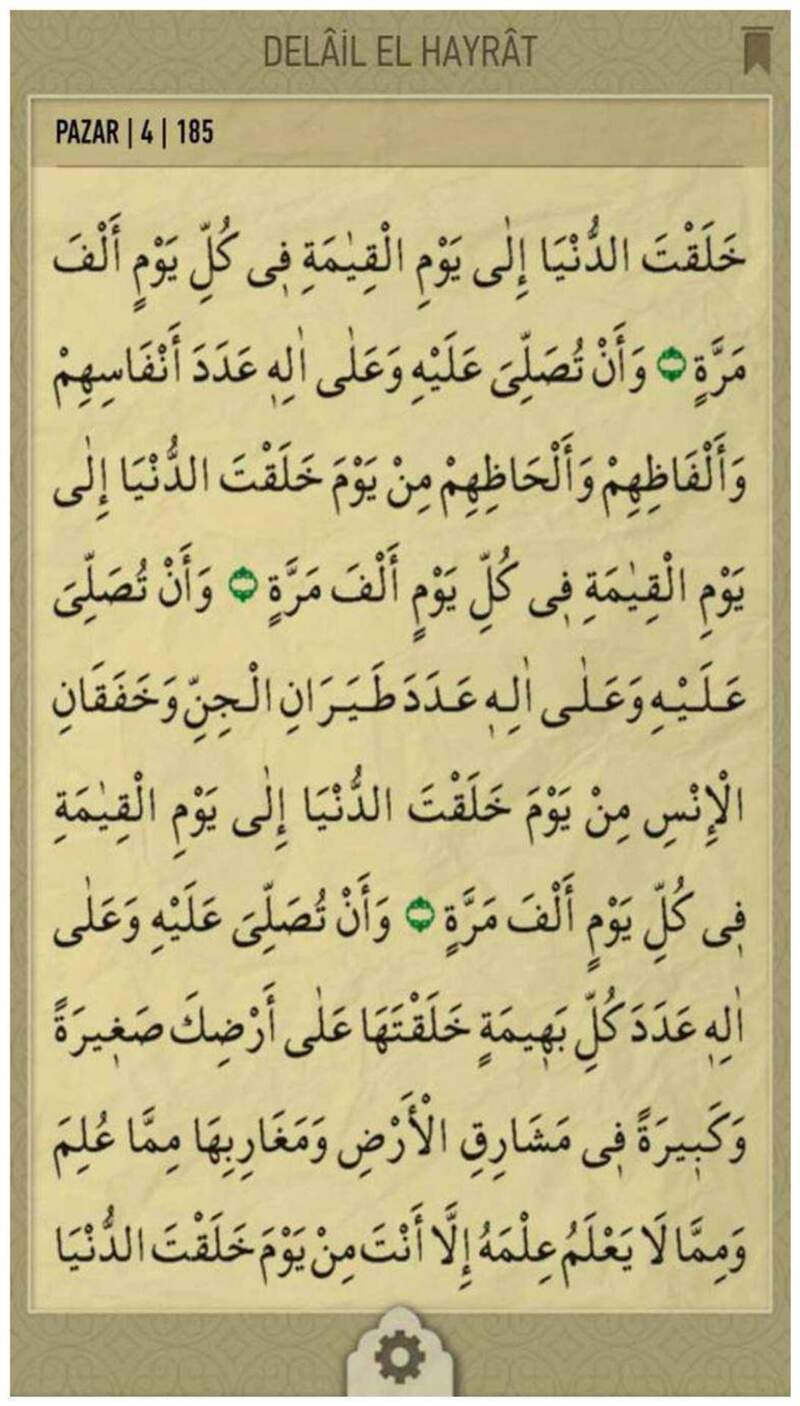 DELÂİL EL HAYRÂT
PAZAR | 4 | 185
خَلَقْتَ الدُّنْيَا إِلٰى يَوْمِ الْقِيٰمَةِ فِى كُلِّ يَوْمٍ أَلْفَ
مَرَّةٍ وَأَنْ تُصَلِّىَ عَلَيْهِ وَعَلٰى اٰلِهٖ عَدَدَ أَنْفَاسِهِمْ
وَأَلْفَاظِهِمْ وَأَلْحَاظِهِمْ مِنْ يَوْمَ خَلَقْتَ الدُّنْيَا إِلٰى
يَوْمِ الْقِيٰمَةِ فِى كُلِّ يَوْمٍ أَلْفَ مَرَّةٍ وَأَنْ تُصَلِّىَ
عَلَيْهِ وَعَلٰى اٰلِهٖ عَدَدَ طَيَرَانِ الْجِنِّ وَخَفَقَانِ
الْإِنْسِ مِنْ يَوْمَ خَلَقْتَ الدُّنْيَا إِلٰى يَوْمِ الْقِيٰمَةِ
فِى كُلِّ يَوْمٍ أَلْفَ مَرَّةٍ وَأَنْ تُصَلِّىَ عَلَيْهِ وَعَلٰى
اٰلِهٖ عَدَدَ كُلِّ بَهِيمَةٍ خَلَقْتَهَا عَلٰى أَرْضِكَ صَغِيرَةً
وَكَبِيرَةً فِى مَشَارِقِ الْأَرْضِ وَمَغَارِبِهَا مِمَّا عُلِمَ
وَمِمَّا لَا يَعْلَمُ عِلْمَهُ إِلَّا أَنْتَ مِنْ يَوْمَ خَلَقْتَ الدُّنْيَا